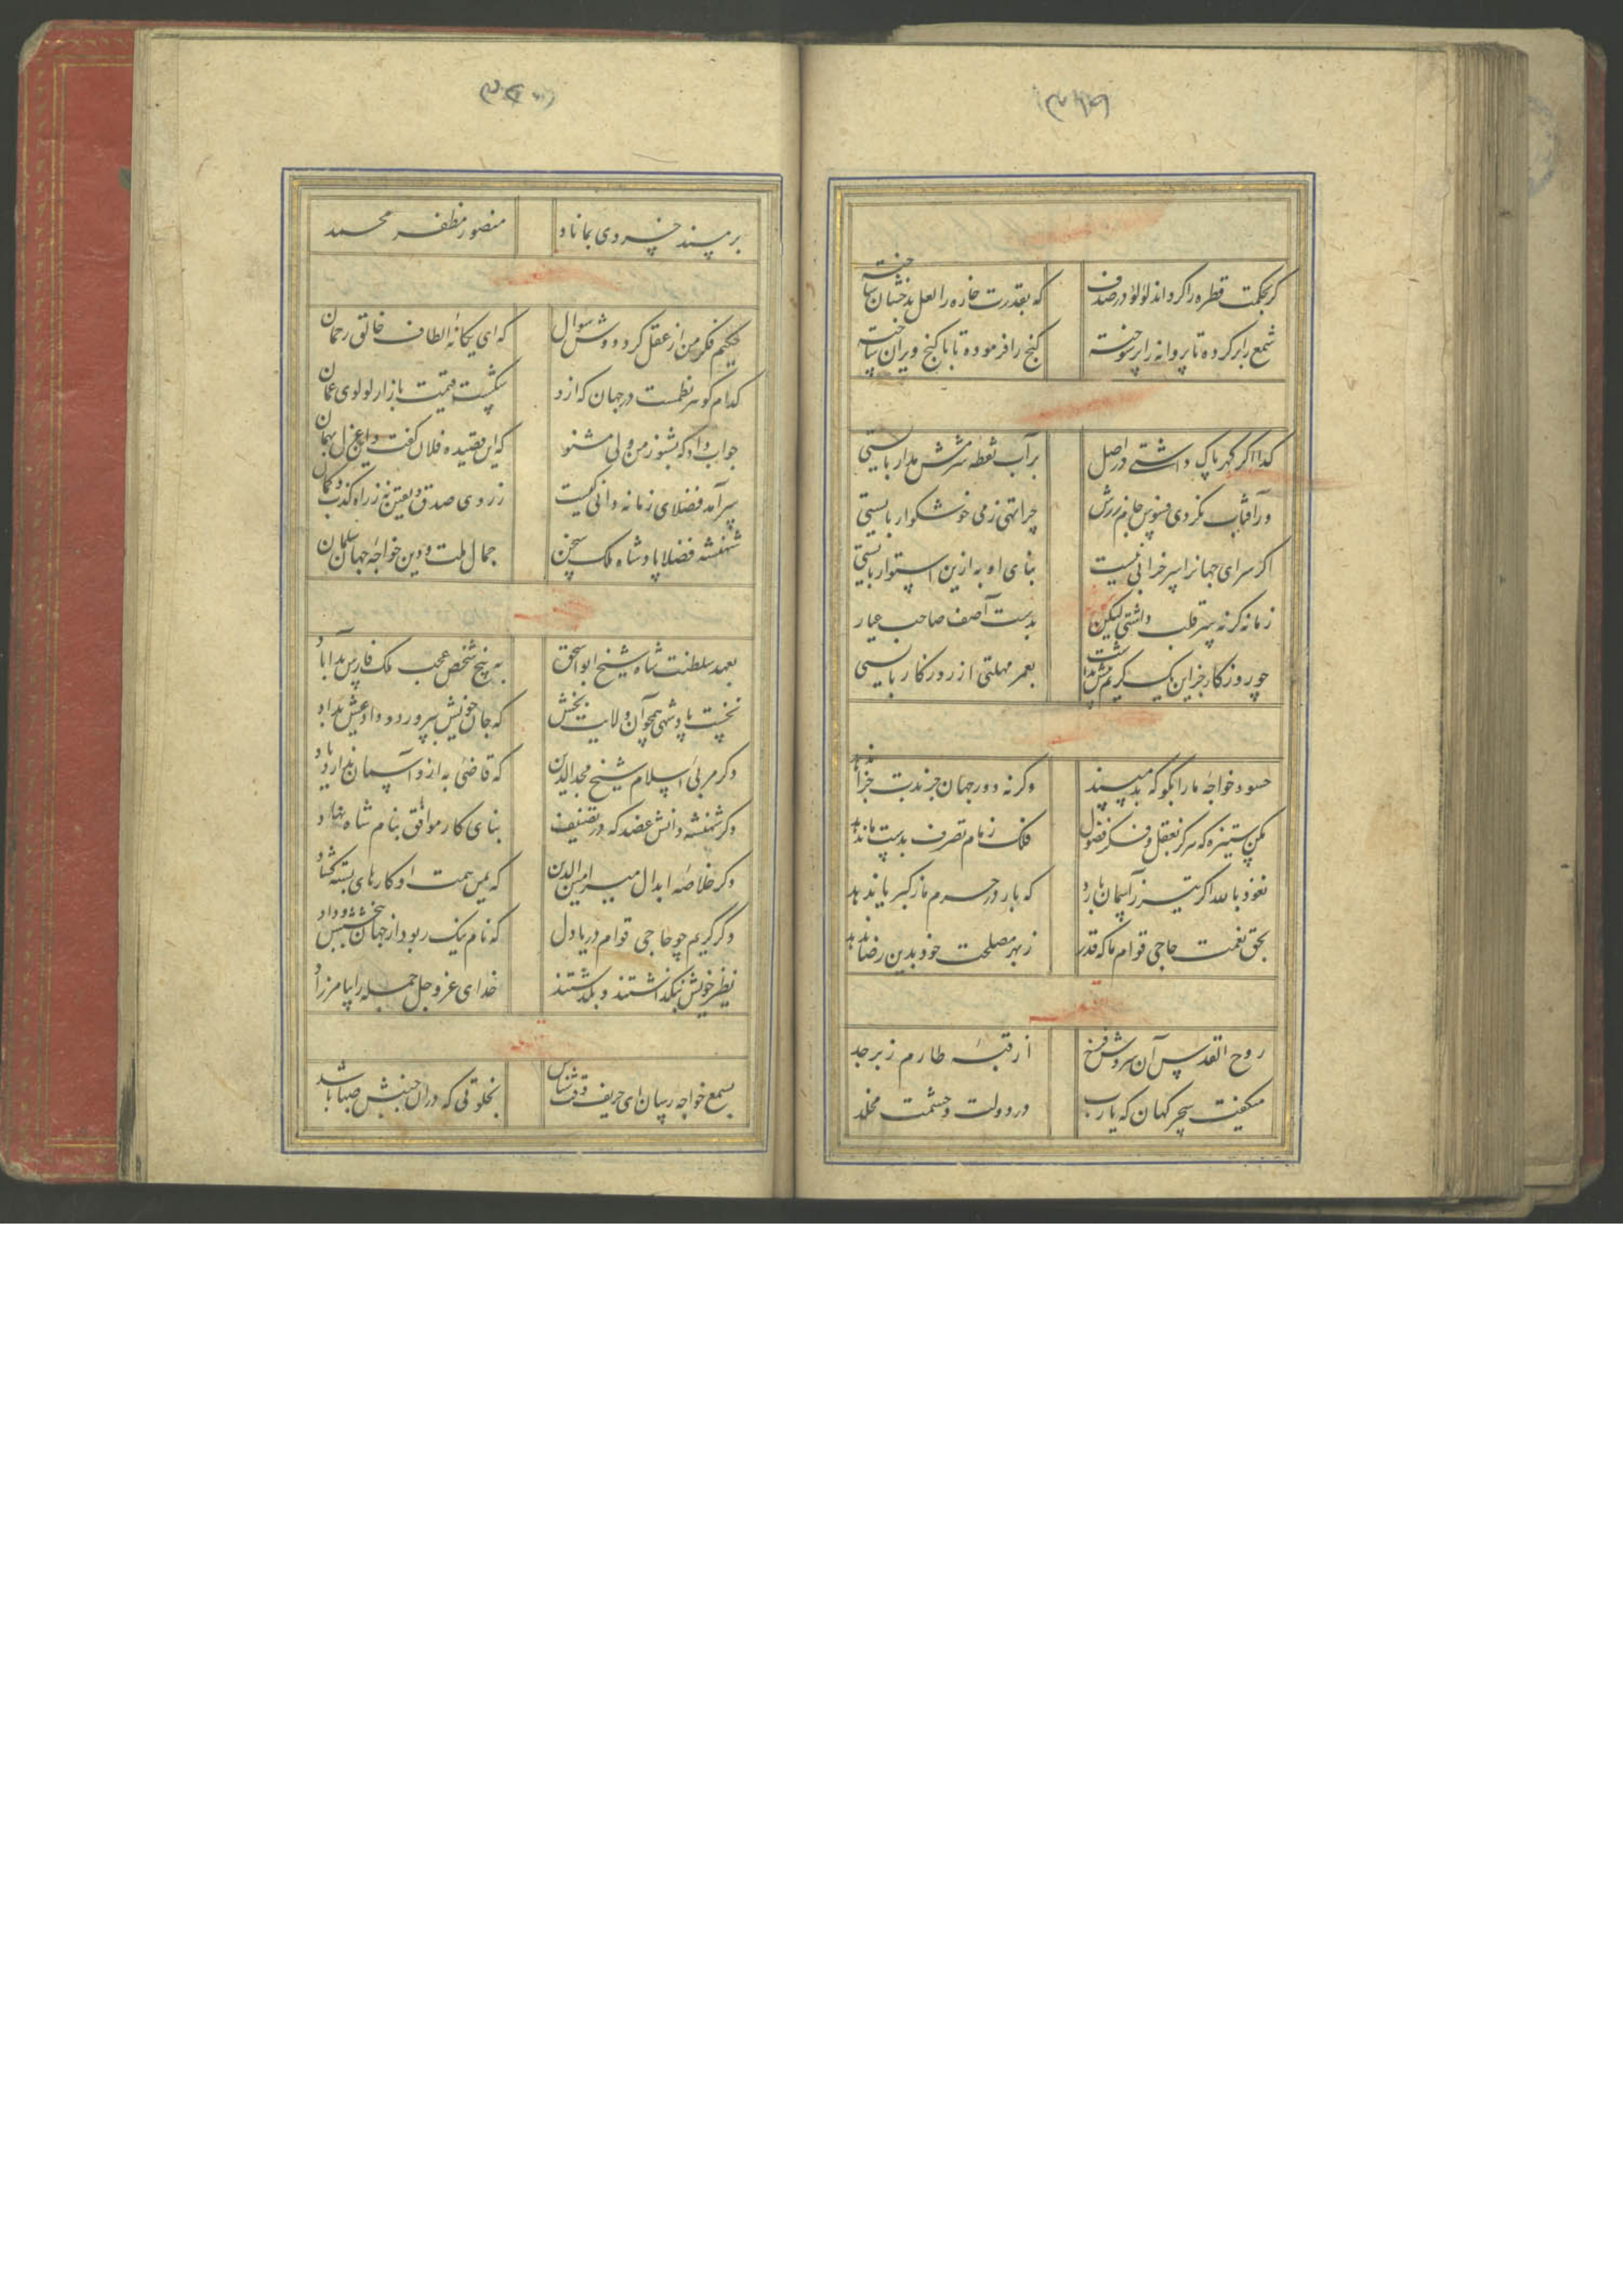 گر بحکمت قطره را گرداند لؤلؤ در صدف که بقدرت خاره را لعل بدخشان ساخته
شمع را بر کرده تا پروانه را بر سوخته گنج را فرموده تا با کنج ویران ساخته
گدا اگر گهر پاک داشتی در اصل بر آب نقطه شرمش مدار بایستی
ور آفتاب نکردی فسوس جام زرش چرا تهی ز می خوشگوار بایستی
اگر سرای جهانرا سر خرابی نیست بنای او به ازین استوار بایستی
زمانه گر نه سر قلب داشتی لیکن بدست آصف صاحب عیار بایستی
چو روزگار جز این یک کریم بیش نداشت بعمر مهلتی از روزگار بایستی
حسود خواجه ما را بگو که بد مپسند وگرنه دور جهان جز بدت جزا ندهد
مکن ستیزه که هرگز بعقل و فکر فضول فلک زمام تصرف بدست ما ندهد
نعوذ بالله اگر تیر ز آسمان بارد که بار در حرم ما ز کبریا ندهد
بحق نعمت حاجی قوام ما که قدر ز بهر مصلحت خود بدین رضا ندهد
روح القدس آن سروش فرخ از قبه طارم زبرجد
میگفت سحر گهان که یا رب در دولت و حشمت مخلد
بر مسند خسروی بماناد منصور مظفر محمد
حکیم فکر من از عقل کرد دوش سوال که ای یگانه الطاف خالق رحمان
کدام گوهر نظمست در جهان که ازو شکست قیمت بازار لولوی عمان
جواب داد که بشنو ز من ولی مشنو که این قصیده فلان گفت و این غزل بهمان
سرآمد فضلای زمانه دانی کیست ز روی صدق و یقین نه ز راه کذب و گمان
شهنشه فضلا پادشاه ملک سخن جمال ملت و دین خواجه جهان سلمان
بعهد سلطنت شاه شیخ ابو اسحق به پنج شخص عجب ملک فارس بد آباد
نخست پادشهی همچو آن ولایت بخش که جان خویش بپرورد و داد عیش بداد
دگر مربی اسلام شیخ مجدالدین که قاضئی به ازو آسمان ندارد یاد
دگر شهنشه دانش عضد که در تصنیف بنای کار موافق بنام شاه نهاد
دگر خلاصه ابدال میر امین الدین که یمن همت او کارهای بسته گشاد
دگر کریم چو حاجی قوام دریا دل که نام نیک ربود از جهان ببخشش و داد
نظیر خویش نبگذاشتند و بگذشتند خدای عز و جل جمله را بیامرزاد
بسمع خواجه رسان ای حریف وقت شناس بخلوتی که در آن جنبش صبا باشد